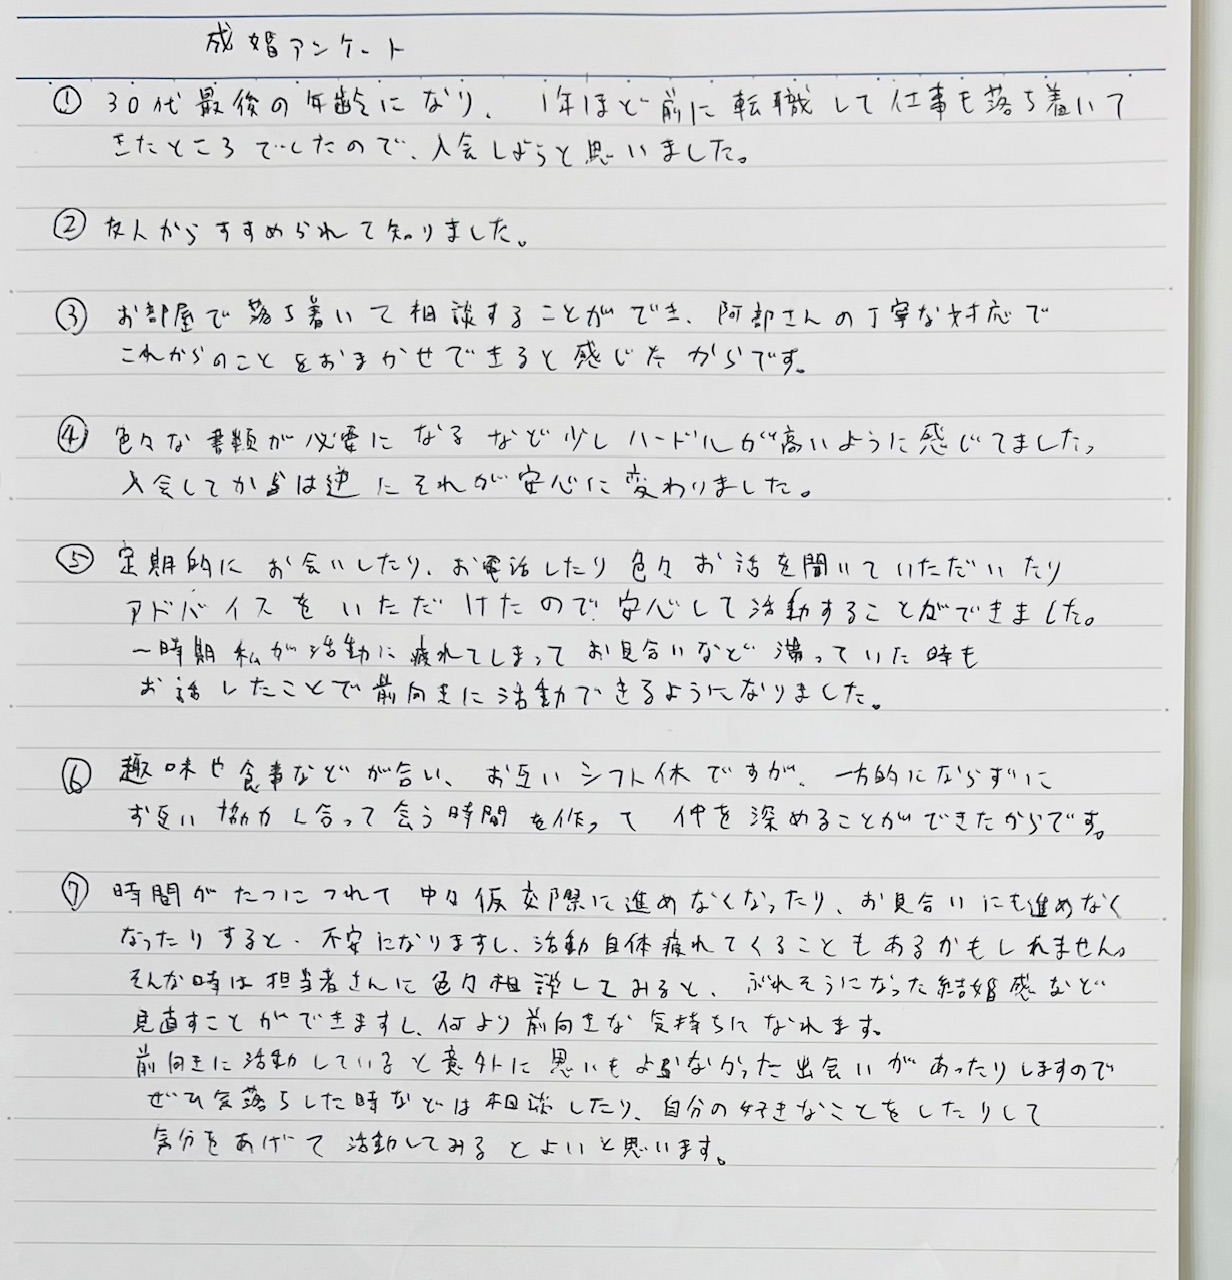 成婚アンケート
① 30代最後の年齢になり、1年ほど前に転職して仕事も落ち着いて
きたところでしたので、入会しようと思いました。
② 友人からすすめられて知りました。
③ お部屋で落ち着いて相談することができ、阿部さんの丁寧な対応で
これからのことをおまかせできると感じたからです。
④ 色々な書類が必要になるなど少しハードルが高いように感じてました。
入会してからは逆にそれが安心に変わりました。
⑤ 定期的にお会いしたり、お電話したり色々お話を聞いていただいたり
アドバイスをいただけたので安心して活動することができました。
一時期私が活動に疲れてしまってお見合いなど滞っていた時も
お話したことで前向きに活動できるようになりました。
⑥ 趣味や食事などが合い、お互いシフト休ですが、一方的にならずに
お互い協力し合って会う時間を作って仲を深めることができたからです。
⑦ 時間がたつにつれて中々仮交際に進めなくなったり、お見合いにも進めなく
なったりすると、不安になりますし、活動自体疲れてくることもあるかもしれません。
そんな時は担当者さんに色々相談してみると、ぶれそうになった結婚感など
見直すことができますし、何より前向きな気持ちになれます。
前向きに活動していると意外に思いもよらなかった出会いがあったりしますので
ぜひ気落ちした時などは相談したり、自分の好きなことをしたりして
気分をあげて活動してみるとよいと思います。